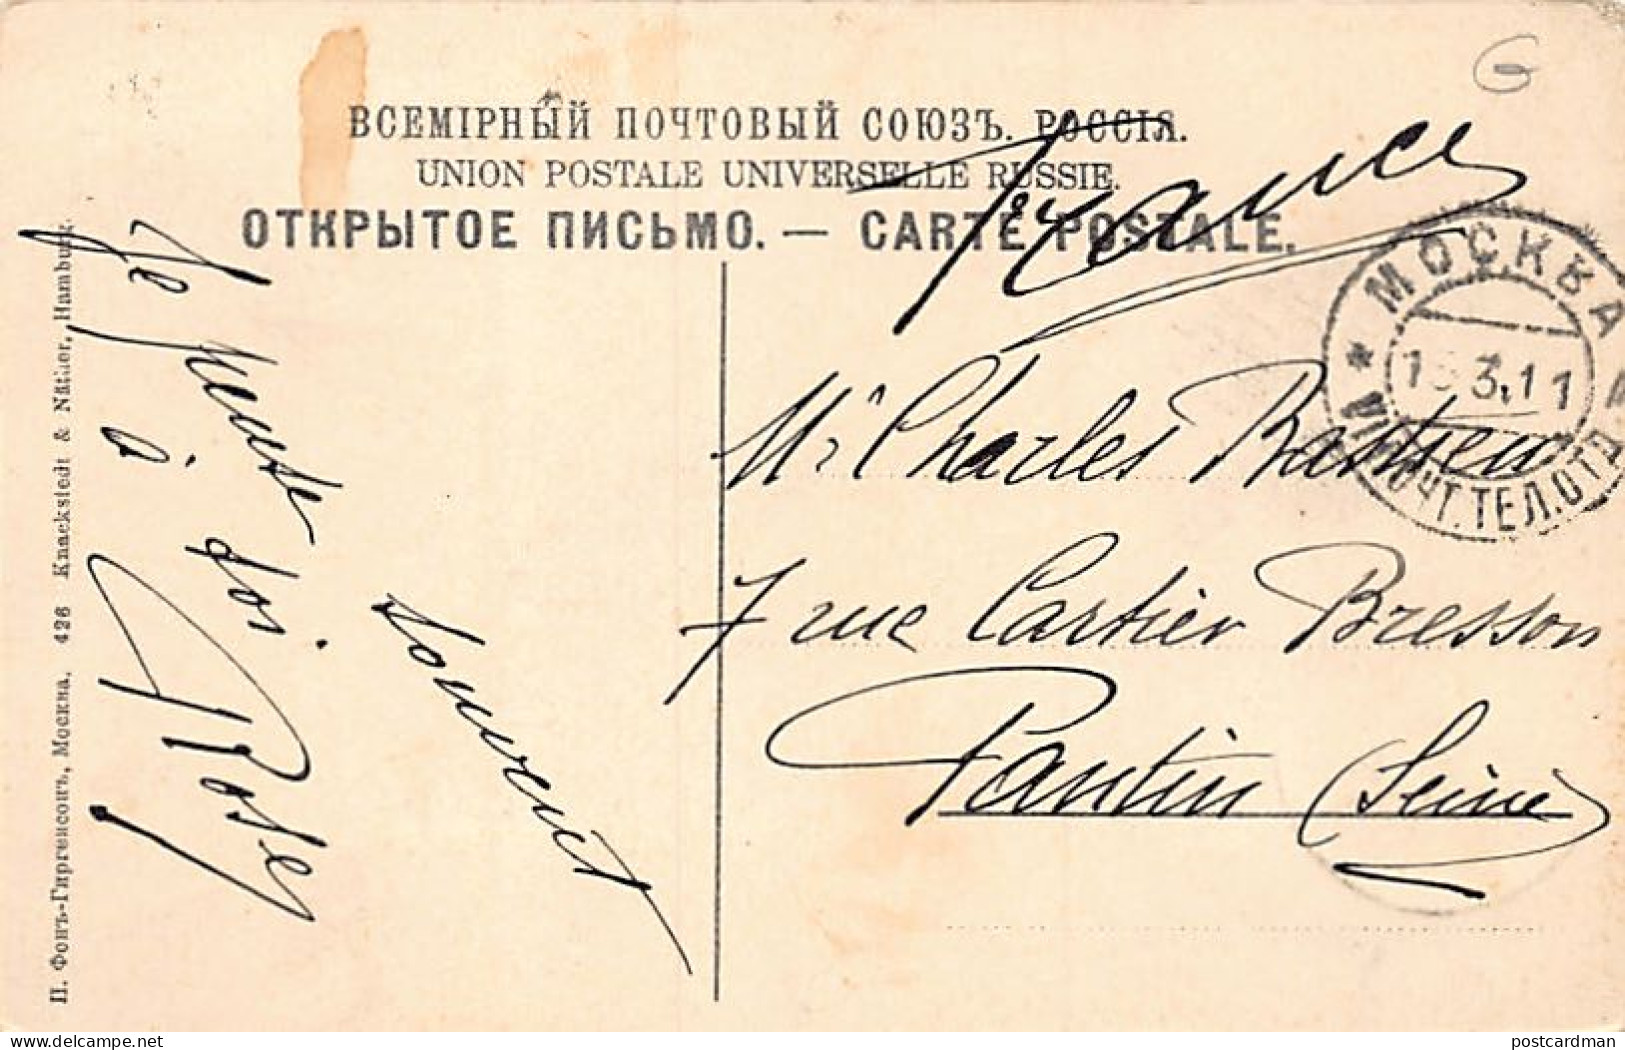 ВСЕМІРНЫЙ ПОЧТОВЫЙ СОЮЗЪ. РОССІЯ.
UNION POSTALE UNIVERSELLE RUSSIE.
ОТКРЫТОЕ ПИСЬМО. — CARTE POSTALE.
France
МОСКВА
3.11
ПОЧТ. ТЕЛ. ОТД
Mr Charles
7 rue Cartier Bresson
Pantin (Seine)
Je pense
à toi
souvent
П. Фонъ-Гиргенсонъ, Москва. 426 Knackstedt & Näther, Hamburg.
postcardman